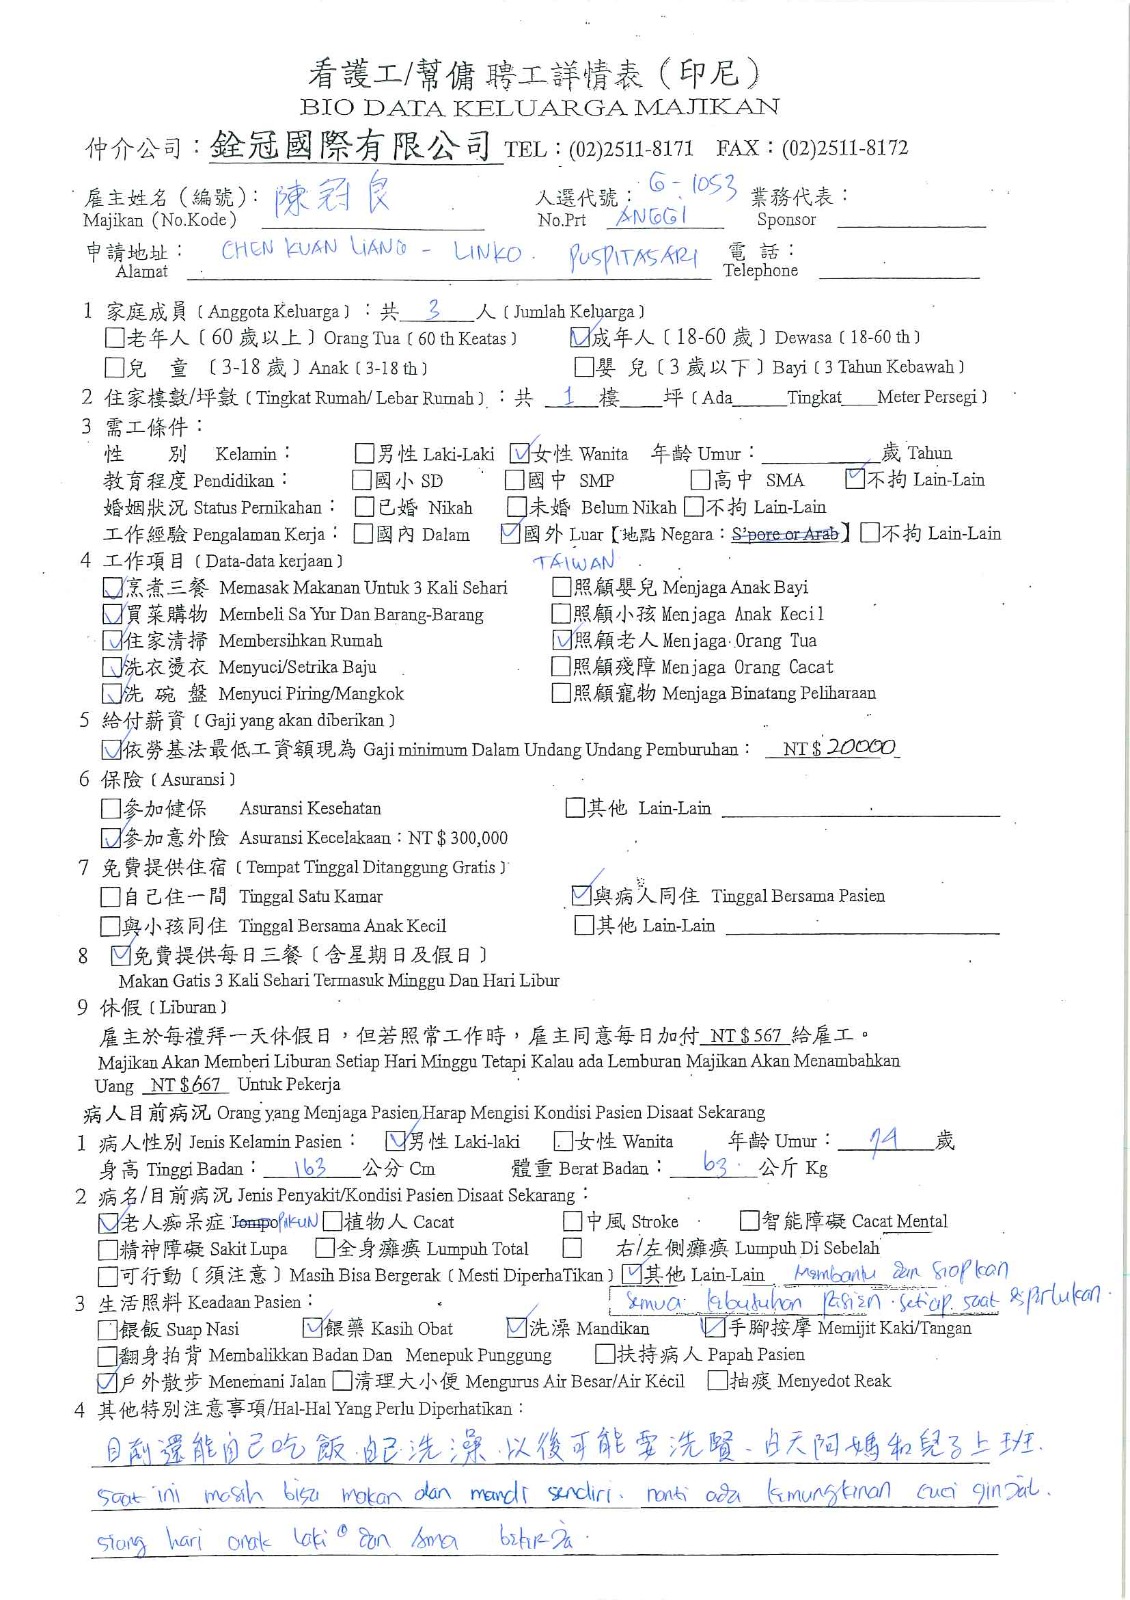 看護工/幫傭 聘工詳情表（印尼）
BIO DATA KELUARGA MAJIKAN
仲介公司：銓冠國際有限公司 TEL：(02)2511-8171 FAX：(02)2511-8172
雇主姓名（編號）： 陳冠良 人選代號： G-1053 業務代表：
Majikan (No.Kode) No.Prt ANGGI Sponsor
申請地址： CHEN KUAN LIANG - LINKO. PUSPITASARI 電 話：
Alamat Telephone
1 家庭成員（Anggota Keluarga）：共 3 人（Jumlah Keluarga）
□老年人（60 歲以上）Orang Tua（60 th Keatas） ☑成年人（18-60 歲）Dewasa（18-60 th）
□兒 童（3-18 歲）Anak（3-18 th） □嬰 兒（3 歲以下）Bayi（3 Tahun Kebawah）
2 住家樓數/坪數（Tingkat Rumah/ Lebar Rumah）：共 1 樓 坪（Ada Tingkat Meter Persegi）
3 需工條件：
性 別 Kelamin： □男性 Laki-Laki ☑女性 Wanita 年齡 Umur： 歲 Tahun
教育程度 Pendidikan： □國小 SD □國中 SMP □高中 SMA ☑不拘 Lain-Lain
婚姻狀況 Status Pernikahan： □已婚 Nikah □未婚 Belum Nikah □不拘 Lain-Lain
工作經驗 Pengalaman Kerja： □國內 Dalam ☑國外 Luar【地點 Negara：S'pore or Arab】□不拘 Lain-Lain
4 工作項目（Data-data kerjaan） TAIWAN
☑烹煮三餐 Memasak Makanan Untuk 3 Kali Sehari □照顧嬰兒 Menjaga Anak Bayi
☑買菜購物 Membeli Sa Yur Dan Barang-Barang □照顧小孩 Menjaga Anak Kecil
☑住家清掃 Membersihkan Rumah ☑照顧老人 Menjaga Orang Tua
☑洗衣燙衣 Menyuci/Setrika Baju □照顧殘障 Menjaga Orang Cacat
☑洗 碗 盤 Menyuci Piring/Mangkok □照顧寵物 Menjaga Binatang Peliharaan
5 給付薪資（Gaji yang akan diberikan）
☑依勞基法最低工資額現為 Gaji minimum Dalam Undang Undang Pemburuhan： NT$ 20000
6 保險（Asuransi）
□參加健保 Asuransi Kesehatan □其他 Lain-Lain
☑參加意外險 Asuransi Kecelakaan：NT$ 300,000
7 免費提供住宿（Tempat Tinggal Ditanggung Gratis）
□自己住一間 Tinggal Satu Kamar ☑與病人同住 Tinggal Bersama Pasien
□與小孩同住 Tinggal Bersama Anak Kecil □其他 Lain-Lain
8 ☑免費提供每日三餐（含星期日及假日）
Makan Gatis 3 Kali Sehari Termasuk Minggu Dan Hari Libur
9 休假（Liburan）
雇主於每禮拜一天休假日，但若照常工作時，雇主同意每日加付 NT$ 567 給雇工。
Majikan Akan Memberi Liburan Setiap Hari Minggu Tetapi Kalau ada Lemburan Majikan Akan Menambahkan
Uang NT$ 667 Untuk Pekerja
病人目前病況 Orang yang Menjaga Pasien Harap Mengisi Kondisi Pasien Disaat Sekarang
1 病人性別 Jenis Kelamin Pasien： ☑男性 Laki-laki □女性 Wanita 年齡 Umur： 74 歲
身高 Tinggi Badan： 163 公分 Cm 體重 Berat Badan： 63 公斤 Kg
2 病名/目前病況 Jenis Penyakit/Kondisi Pasien Disaat Sekarang：
☑老人痴呆症 Jompo PIKUN □植物人 Cacat □中風 Stroke □智能障礙 Cacat Mental
□精神障礙 Sakit Lupa □全身癱瘓 Lumpuh Total □ 右/左側癱瘓 Lumpuh Di Sebelah
□可行動（須注意）Masih Bisa Bergerak（Mesti DiperhaTikan）☑其他 Lain-Lain Membantu dan siapkan
3 生活照料 Keadaan Pasien： semua kebutuhan pasien setiap saat diperlukan.
□餵飯 Suap Nasi ☑餵藥 Kasih Obat ☑洗澡 Mandikan ☑手腳按摩 Memijit Kaki/Tangan
□翻身拍背 Membalikkan Badan Dan Menepuk Punggung □扶持病人 Papah Pasien
☑戶外散步 Menemani Jalan □清理大小便 Mengurus Air Besar/Air Kecil □抽痰 Menyedot Reak
4 其他特別注意事項/Hal-Hal Yang Perlu Diperhatikan：
目前還能自己吃飯.自己洗澡.以後可能要洗腎.白天阿媽和兒子上班.
saat ini masih bisa makan dan mandi sendiri. nanti ada kemungkinan cuci ginjal.
siang hari anak laki² dan ama bekerja.